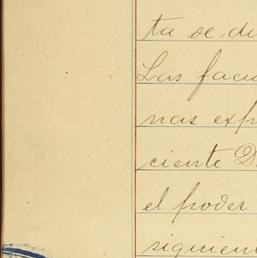 ta se di
Las facu
nas expr
ciente D
el poder
siguient